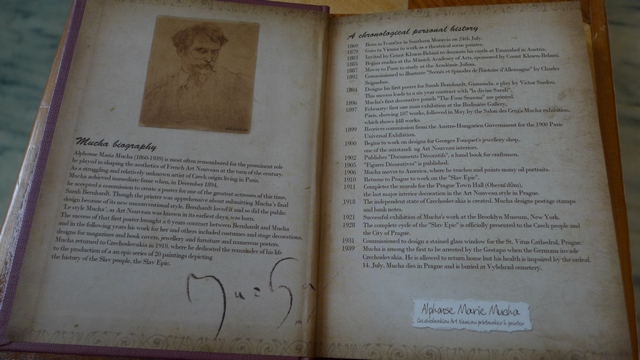 Mucha biography
Alphonse Maria Mucha (1860-1939) is most often remembered for the prominent role
he played in shaping the aesthetics of French Art Nouveau at the turn of the century.
As a struggling and relatively unknown artist of Czech origin living in Paris,
Mucha achieved immediate fame when, in December 1894,
he accepted a commission to create a poster for one of the greatest actresses of this time,
Sarah Bernhardt. Though the printer was apprehensive about submitting Mucha's final
design because of its new unconventional style, Bernhardt loved it and so did the public.
'Le style Mucha', as Art Nouveau was known in its earliest days, was born.
The success of that first poster brought a 6 years contract between Bernhardt and Mucha
and in the following years his work for her and others included costumes and stage decorations,
designs for magazines and book covers, jewellery and furniture and numerous posters.
Mucha returned to Czechoslovakia in 1910, where he dedicated the remainder of his life
to the production of a an epic series of 20 paintings depicting
the history of the Slav people, the Slav Epic.
Mucha
A chronological personal history
1860 Born in Ivančice in Southern Moravia on 24th July.
1879 Goes to Vienna to work as a theatrical scene painter.
1883 Invited by Count Khuen-Belassi to decorate his castle at Emmahof in Austria.
1885 Begins studies at the Munich Academy of Arts, sponsored by Count Khuen-Belassi.
1887 Moves to Paris to study at the Académie Julian.
1892 Commissioned to illustrate "Scenes et Episodes de l'histoire d'Allemagne" by Charles
Seignobos.
1894 Designs his first poster for Sarah Bernhardt, Gismonda, a play by Victor Sardou.
This success leads to a six year contract with "la divine Sarah".
1896 Mucha's first decorative panels "The Four Seasons" are printed.
1897 February: first one man exhibition at the Bodinière Gallery,
Paris, showing 107 works, followed in May by the Salon des Cents Mucha exhibition,
which shows 448 works.
1899 Receives commission from the Austro-Hungarian Government for the 1900 Paris
Universal Exhibition.
1900 Begins to work on designs for Georges Fouquet's jewellery shop,
one of the outstanding Art Nouveau interiors.
1902 Publishes "Documents Décoratifs", a hand book for craftsmen.
1905 "Figures Décoratives" is published.
1906 Mucha moves to America, where he teaches and paints many oil portraits.
1910 Returns to Prague to work on the "Slav Epic".
1911 Completes the murals for the Prague Town Hall (Obecní dům),
the last major interior decoration in the Art Nouveau style in Prague.
1918 The independent state of Czechoslovakia is created. Mucha designs postage stamps
and bank notes.
1921 Successful exhibition of Mucha's work at the Brooklyn Museum, New York.
1928 The complete cycle of the "Slav Epic" is officially presented to the Czech people and
the City of Prague.
1931 Commissioned to design a stained glass window for the St. Vitus Cathedral, Prague.
1939 Mucha is among the first to be arrested by the Gestapo when the Germans invade
Czechoslovakia. He is allowed to return home but his health is impaired by the ordeal.
14. July, Mucha dies in Prague and is buried at Vyšehrad cemetery.
Alphonse Marie Mucha
Czechoslovakian Art Nouveau printmaker & painter